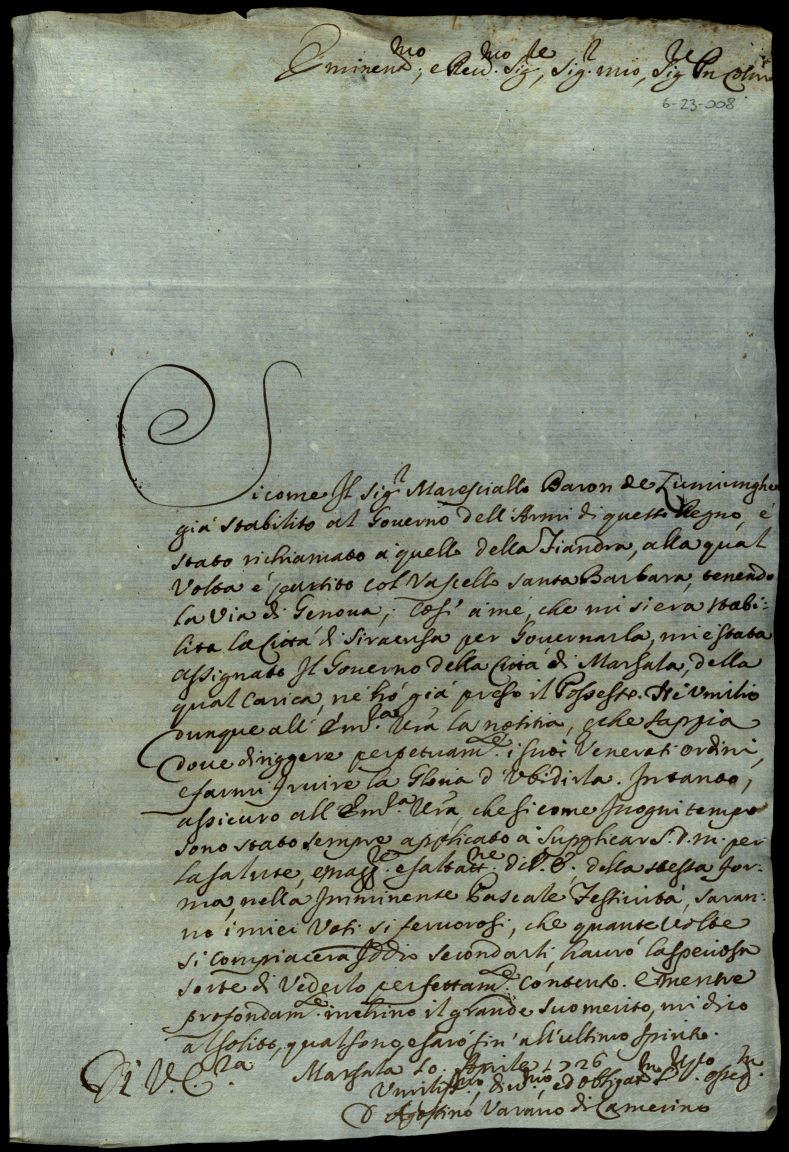 Eminen.mo, e Reu.mo Sig.re, Sig.r mio, Sig.re P.n Col.mo
6-23-008
Sicome Il Sig.r Maresciallo Baron de Zumiunghe
già stabilito al Gouerno dell'Armi di questo Regno, è
stato richiamato à quello della Fiandra, alla qual
Volta è partito col Vascello Santa Barbara, tenendo
la Via di Genoua; Così à me, che mi si era stabi-
lita la Città di Siracusa per Gouernarla, mi è stata
assignato Il Gouerno della Città di Marsala, della
qual Carica, ne hò già preso il Possesso. Ne umilio
dunque all'Em.za Vra la notitia, che sappia
doue diriggere perpetuam.te i suoi Venerati ordini,
e farmi fruire la Gloria d'Vbidirla. Intanto,
assicuro all'Em.za Vra che sicome In ogni tempo
sono stato sempre applicato à supplicar S. D. M. per
la salute, e magg.re esaltat.ne di V. E., della stessa for-
ma, nella Imminente Pascale Festiuità, saran-
no i miei Voti si feruorosi, che quante Volte
si compiacerà Iddio secondarli, haurò la speciosa
sorte di Vederlo perfettam.te Contento. e mentre
profondam.te inchino il grande suo merito, mi dico
al solito, qual sono, e sarò sin' all'ultimo spirito.
Di V. E.za Marsala 10 Aprile 1726
Vmiliss.mo, diu.mo, ed obligat.mo osseq.mo
D Agostino Varano di Camerino